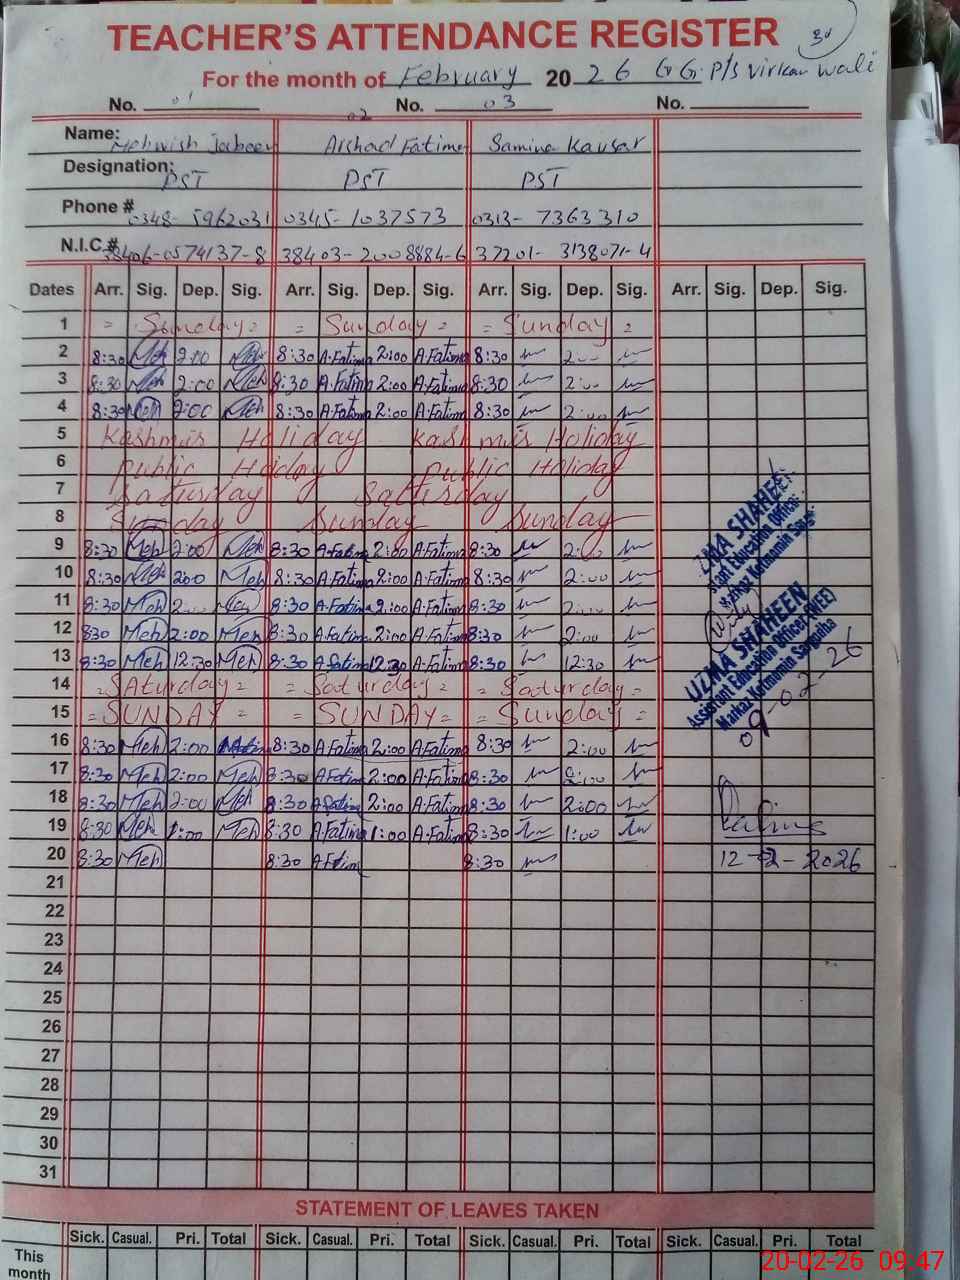 30
TEACHER'S ATTENDANCE REGISTER
For the month of February 2026 GG. P/S Virkan Wali
No. 01 02 No. 03 No.
Name: Mehwish Jabeen Arshad Fatima Samina Kausar
Designation: PST PST PST
Phone # 0348-5962031 0345-1037573 0313-7363310
N.I.C.# 38406-0574137-8 38403-2008884-6 37201-3138071-4
Dates Arr. Sig. Dep. Sig. Arr. Sig. Dep. Sig. Arr. Sig. Dep. Sig. Arr. Sig. Dep. Sig.
1 = Sunday = = Sunday = = Sunday =
2 8:30 Meh 2:00 Meh 8:30 A.Fatima 2:00 A.Fatima 8:30 2:00
3 8:30 Meh 2:00 Meh 8:30 A.Fatima 2:00 A.Fatima 8:30 2:00
4 8:30 Meh 2:00 Meh 8:30 A.Fatima 2:00 A.Fatima 8:30 2:00
5 Kashmir Holiday Kashmir Holiday
6 Public Holiday Public Holiday
7 Saturday Saturday
8 Sunday Sunday Sunday
9 8:30 Meh 2:00 Meh 8:30 A.Fatima 2:00 A.Fatima 8:30 2:00
10 8:30 Meh 2:00 Meh 8:30 A.Fatima 2:00 A.Fatima 8:30 2:00
11 8:30 Meh 2:00 Meh 8:30 A.Fatima 2:00 A.Fatima 8:30 2:00
12 830 Meh 2:00 Meh 8:30 A.Fatima 2:00 A.Fatima 8:30 2:00
13 8:30 Meh 12:30 Meh 8:30 A.Fatima 12:30 A.Fatima 8:30 12:30
14 = SAturday = = Saturday = = Saturday =
15 = SUNDAY = = SUNDAY = = Sunday =
16 8:30 Meh 2:00 8:30 A.Fatima 2:00 A.Fatima 8:30 2:00
17 8:30 Meh 2:00 Meh 8:30 A.Fatima 2:00 A.Fatima 8:30 2:00
18 8:30 Meh 2:00 Meh 8:30 A.Fatima 2:00 A.Fatima 8:30 2:00
19 8:30 Meh 1:00 Meh 8:30 A.Fatima 1:00 A.Fatima 8:30 1:00
20 8:30 Meh 8:30 A.Fatima 8:30
UZMA SHAHEEN
Assistant Education Officer
Markaz Kotmomin Sargodha
UZMA SHAHEEN
Assistant Education Officer (WEE)
Markaz Kotmomin Sargodha
09-02-26
12-02-2026
21
22
23
24
25
26
27
28
29
30
31
STATEMENT OF LEAVES TAKEN
Sick. Casual. Pri. Total Sick. Casual. Pri. Total Sick. Casual. Pri. Total Sick. Casual. Pri. Total
This month
20-02-26 09:47